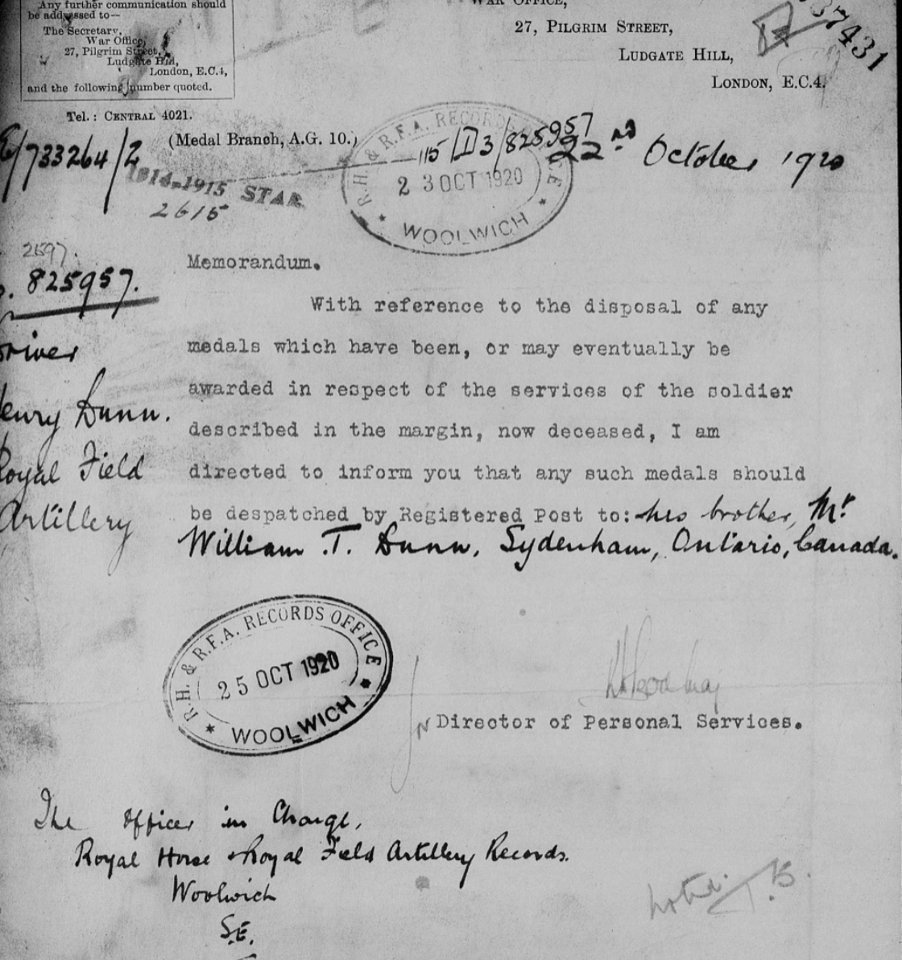 Any further communication should
be addressed to—
The Secretary,
War Office,
27, Pilgrim Street,
Ludgate Hill,
London, E.C.4,
and the following number quoted.
War Office,
27, Pilgrim Street,
Ludgate Hill,
London, E.C.4.
37431
Tel.: Central 4021.
(Medal Branch, A.G. 10.)
/733264/2
1914-1915 STAR
2615
R.H. & R.F.A. RECORDS
23 OCT 1920
WOOLWICH
115/D3/825957
22nd October 1920
2697.
825957.
Driver
Henry Dunn.
Royal Field
Artillery
Memorandum.
With reference to the disposal of any
medals which have been, or may eventually be
awarded in respect of the services of the soldier
described in the margin, now deceased, I am
directed to inform you that any such medals should
be despatched by Registered Post to: his brother, Mr
William T. Dunn, Sydenham, Ontario, Canada.
R.H. & R.F.A. RECORDS OFFICE
25 OCT 1920
WOOLWICH
Director of Personal Services.
The Officer in Charge,
Royal Horse & Royal Field Artillery Records.
Woolwich
S.E.
noted.